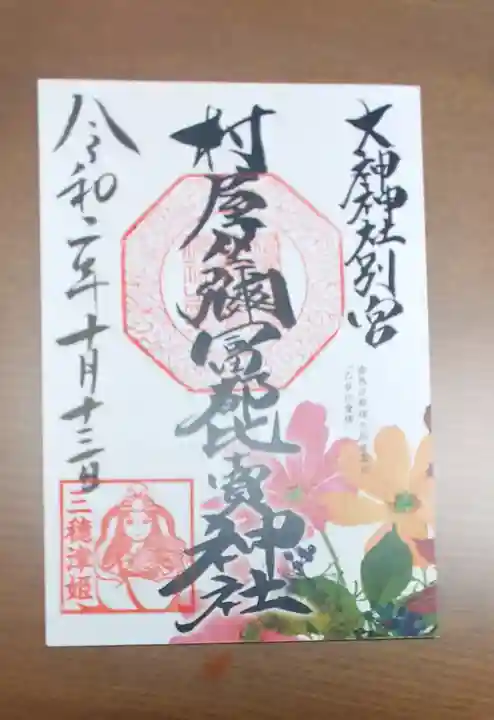 大神神社別宮
村屋坐彌冨都比賣神社
令和二年十月十三日
三穂津姫